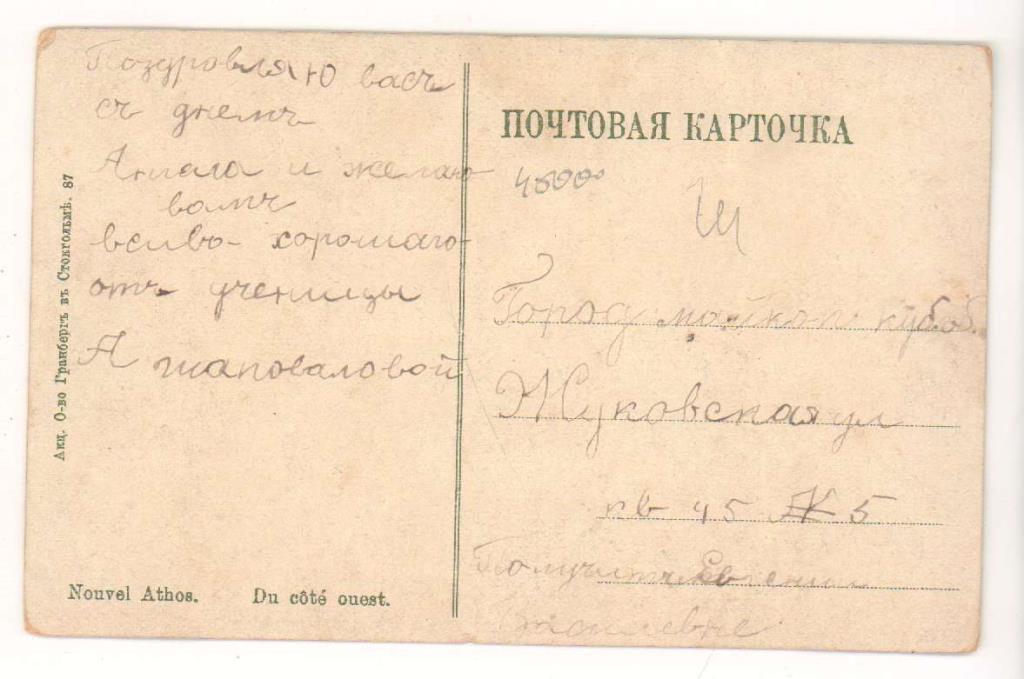 Поздровляю васъ
съ днемъ
Ангела и желаю
вамъ
всиво хорошаго
отъ ученицы
А шаповаловой
Акц. О-во Гранбергъ въ Стокгольмѣ. 87
Nouvel Athos. Du côté ouest.
ПОЧТОВАЯ КАРТОЧКА
Город майкоп куб. об.
Жуковская ул
кв 45 5
Получит Евгении
василевне